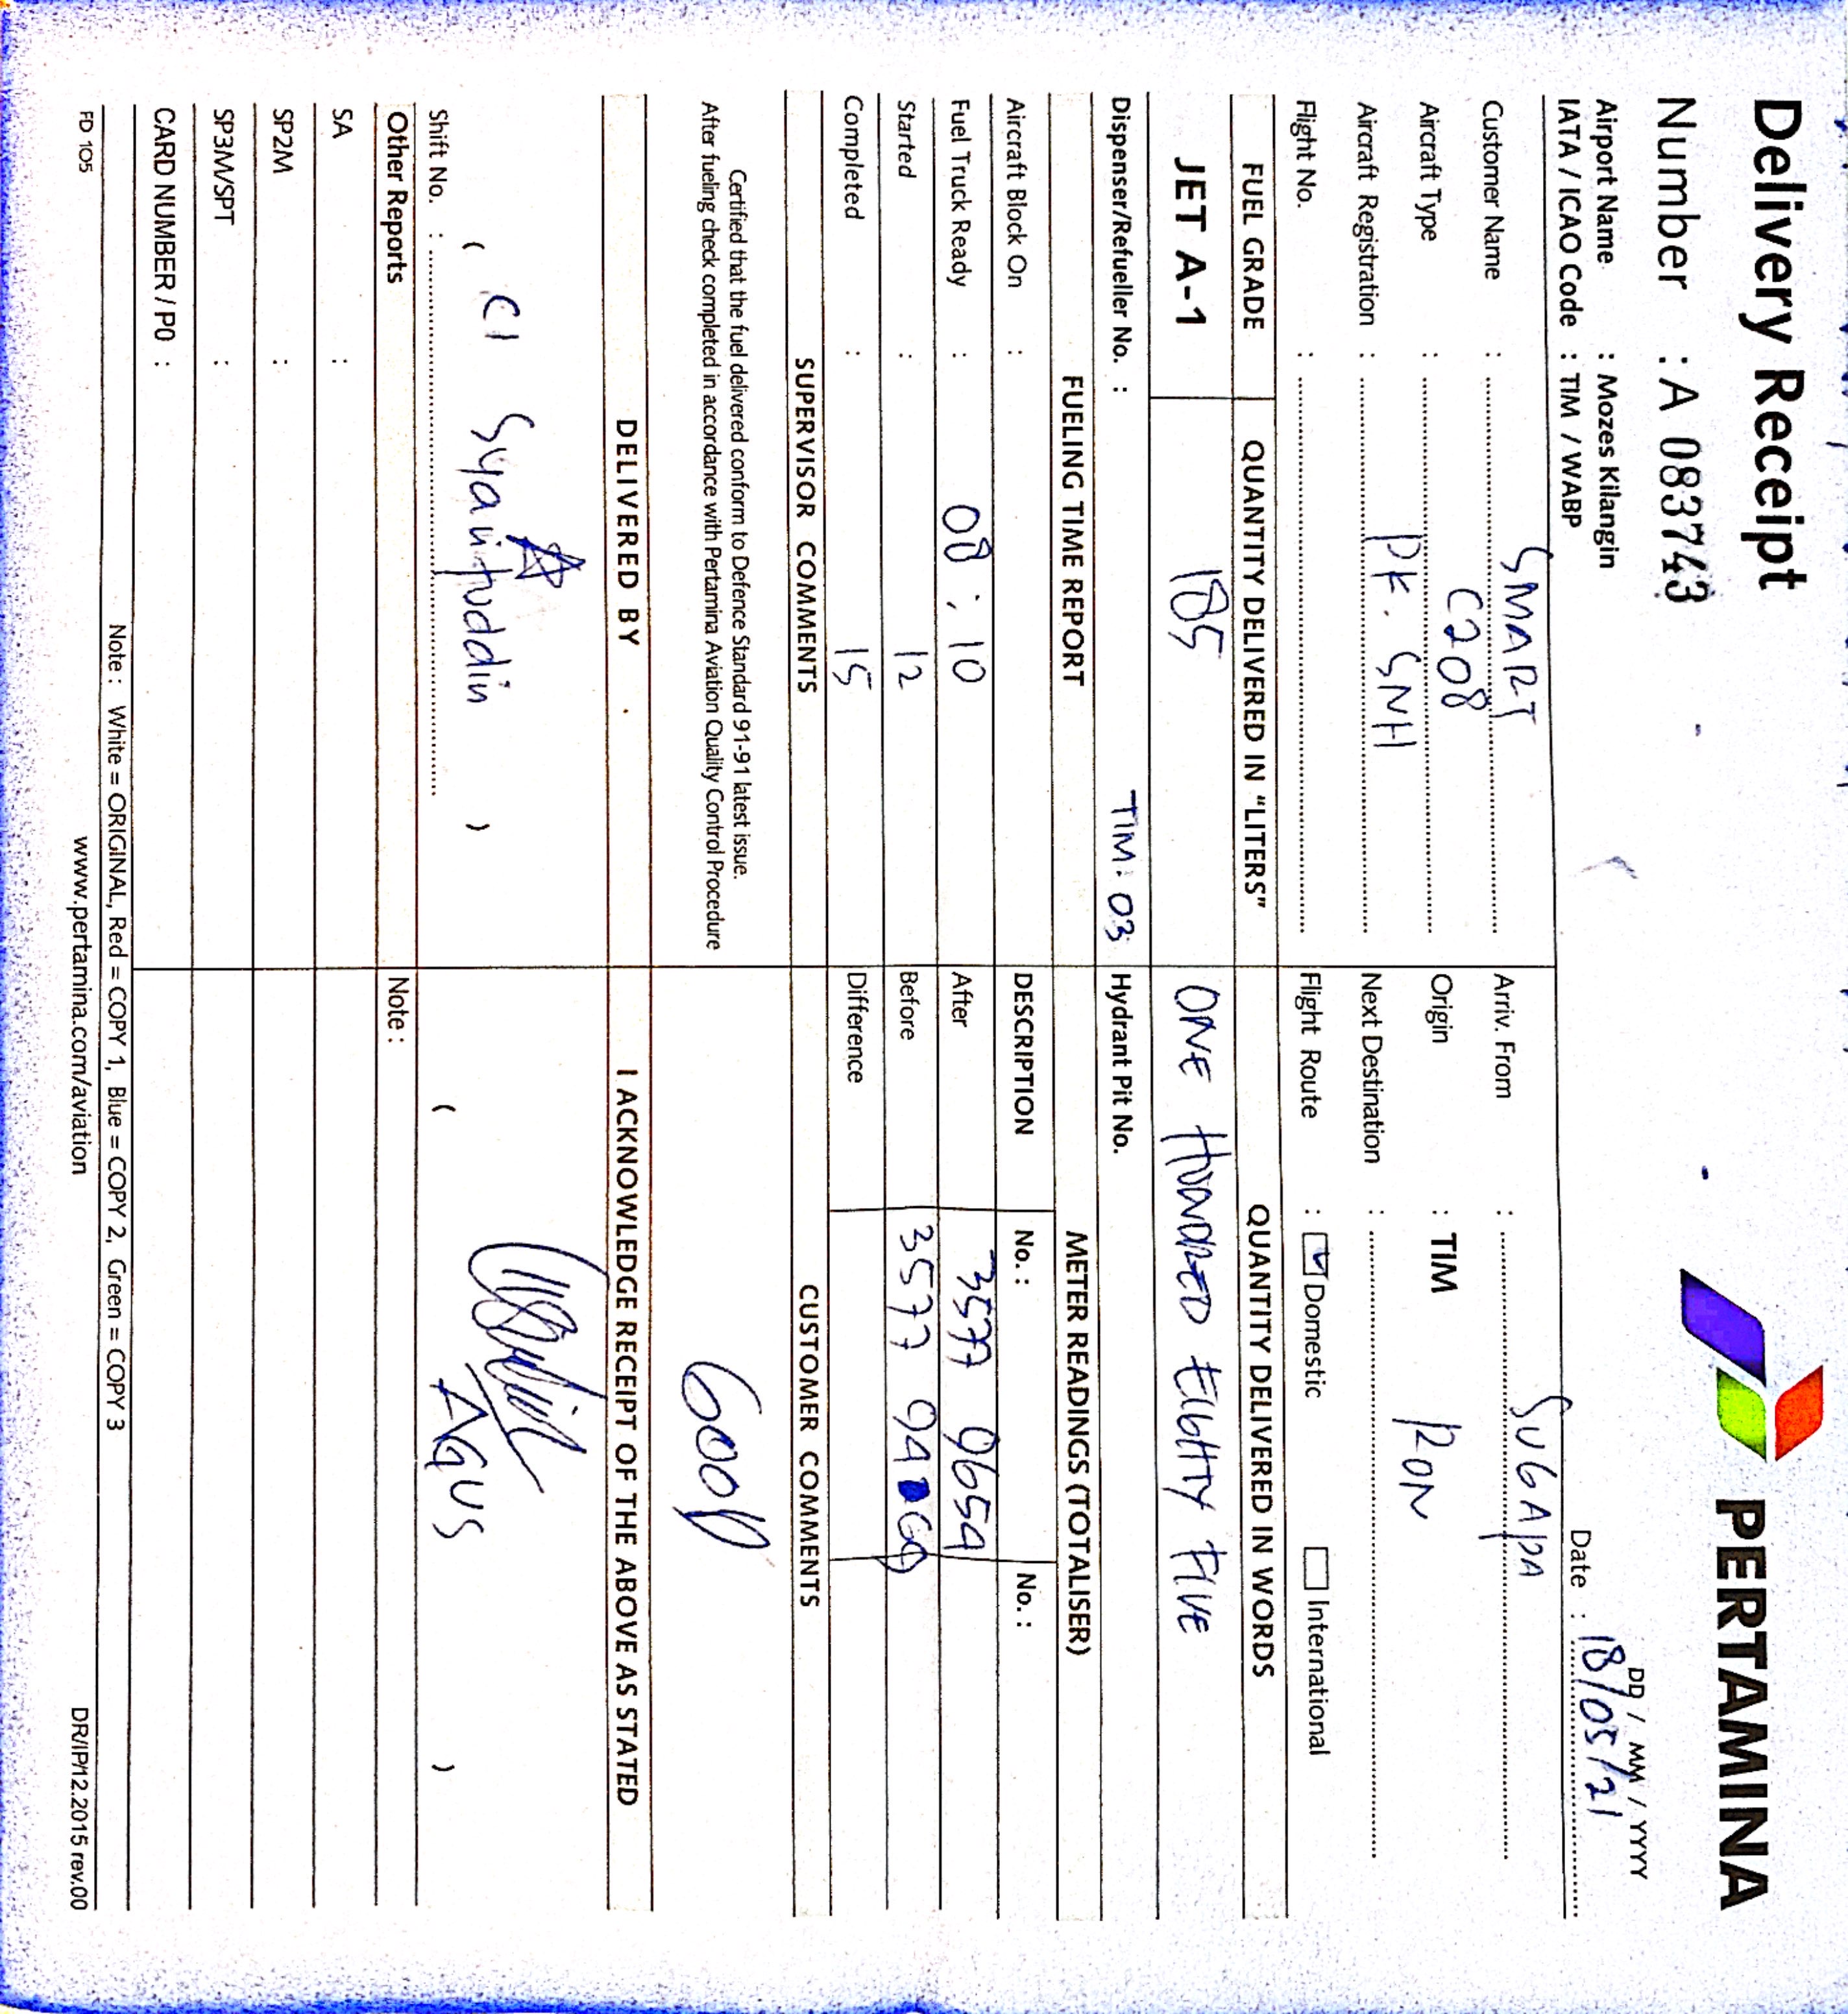 Delivery Receipt
PERTAMINA
Number : A 083743
DD / MM / YYYY
Airport Name : Mozes Kilangin
Date : 18/05/21
IATA / ICAO Code : TIM / WABP
Customer Name : SMART
Arriv. From : SUGAPA
Aircraft Type : C208
Origin : TIM
Aircraft Registration : PK. SNH
Next Destination : RON
Flight No. :
Flight Route : Domestic International
FUEL GRADE QUANTITY DELIVERED IN "LITERS" QUANTITY DELIVERED IN WORDS
JET A-1 185 ONE HUNDRED EIGHTY FIVE
Dispenser/Refueller No. : TIM. 03 Hydrant Pit No.
FUELING TIME REPORT METER READINGS (TOTALISER)
Aircraft Block On : DESCRIPTION No. : No. :
Fuel Truck Ready : 08 : 10 After 3577 9654
Started : 12 Before 3577
Completed : 15 Difference
SUPERVISOR COMMENTS CUSTOMER COMMENTS
Certified that the fuel delivered conform to Defence Standard 91-91 latest issue.
After fueling check completed in accordance with Pertamina Aviation Quality Control Procedure
GOOD
DELIVERED BY I ACKNOWLEDGE RECEIPT OF THE ABOVE AS STATED
( )
( AGUS )
Shift No. :
Other Reports Note :
SA :
SP2M :
SP3M/SPT :
CARD NUMBER / PO :
Note : White = ORIGINAL, Red = COPY 1, Blue = COPY 2, Green = COPY 3
FD 105 www.pertamina.com/aviation DR/IP/12.2015 rev.00